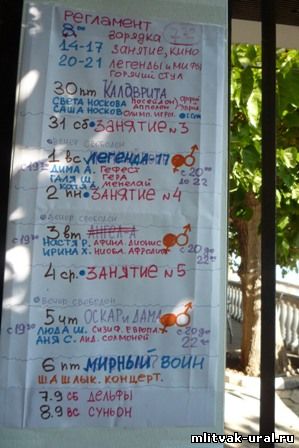 РЕГЛАМЕНТ
8 00 зарядка 7 30
14-17 занятие, кино
20-21 легенды и мифы
горячий стул
30 пт КАЛАВРИТА
СВЕТА НОСКОВА посейдон
САША НОСКОВ аполлон
олимп. игры.
31 сб • ЗАНЯТИЕ №3
вечер свободен
1 вс ЛЕГЕНДА-17
с 19 30 ДИМА А. Гефест с 20 00
ГАЛЯ Ш. Гера до 22
Менелай
2 пн • ЗАНЯТИЕ №4
вечер свободен
3 вт АНГЕЛ-А
с 19 30 НАСТЯ Р. Афина Дионис с 20 до
ИРИНА Х. Ниоба. Афродита 22 00
4 ср. • ЗАНЯТИЕ №5
вечер свободен
5 чт ОСКАР и ДАМА
с 19 30 ЛЮДА Ш. Сизиф. Европа с 20 до
АНЯ С. Аид. Салмоней 22 00
6 пт МИРНЫЙ ВОИН
ШАШЛЫК. КОНЦЕРТ.
7.9 сб ДЕЛЬФЫ
8.9 вс СУНЬОН
mlitvak-ural.ru